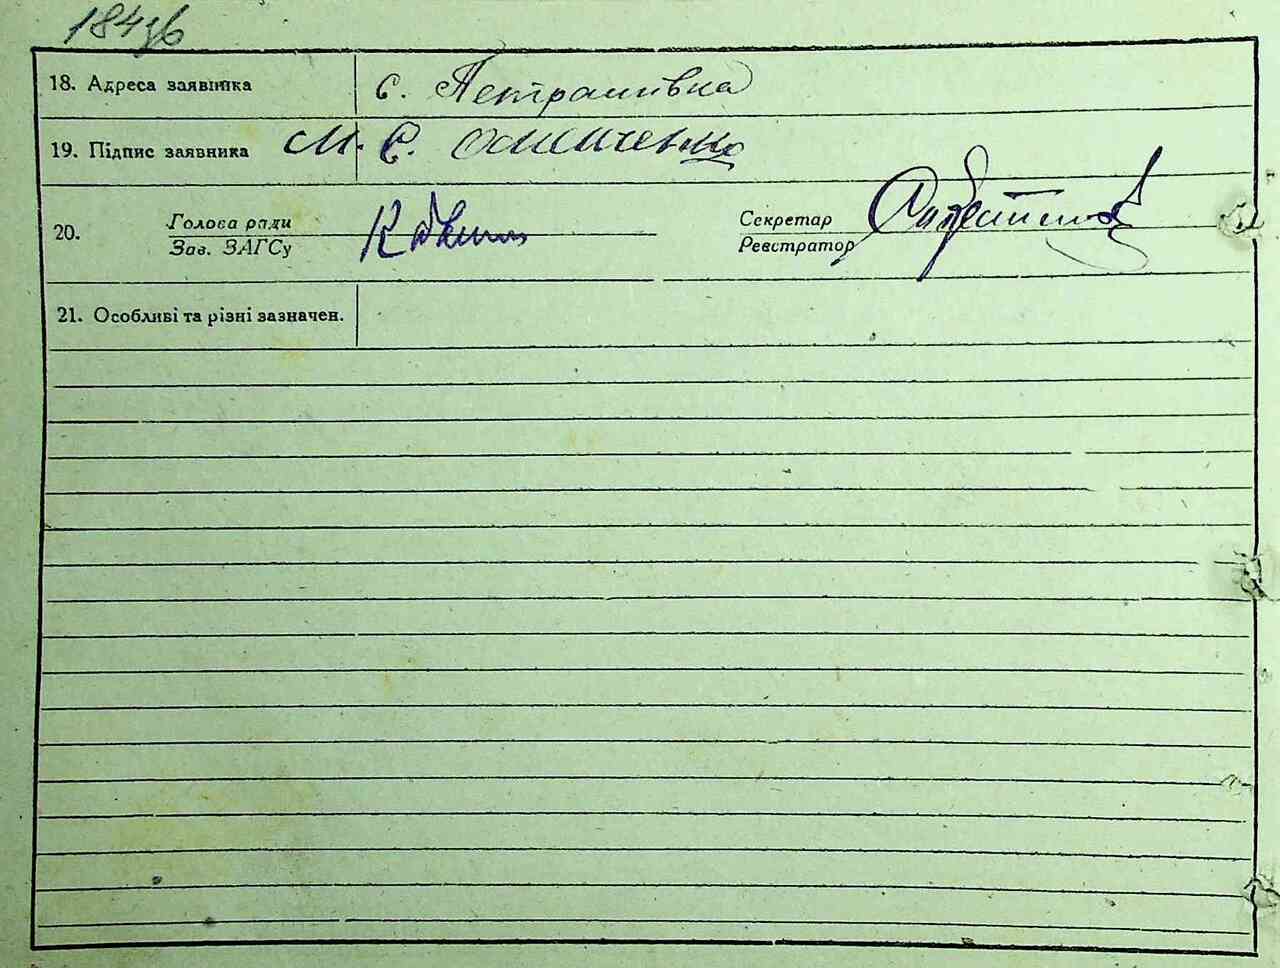 184зв
18. Адреса заявника с. Петрашівка
19. Підпис заявника М. Є.
20. Голова ради Секретар
Зав. ЗАГСу Реєстратор
21. Особливі та різні зазначен.